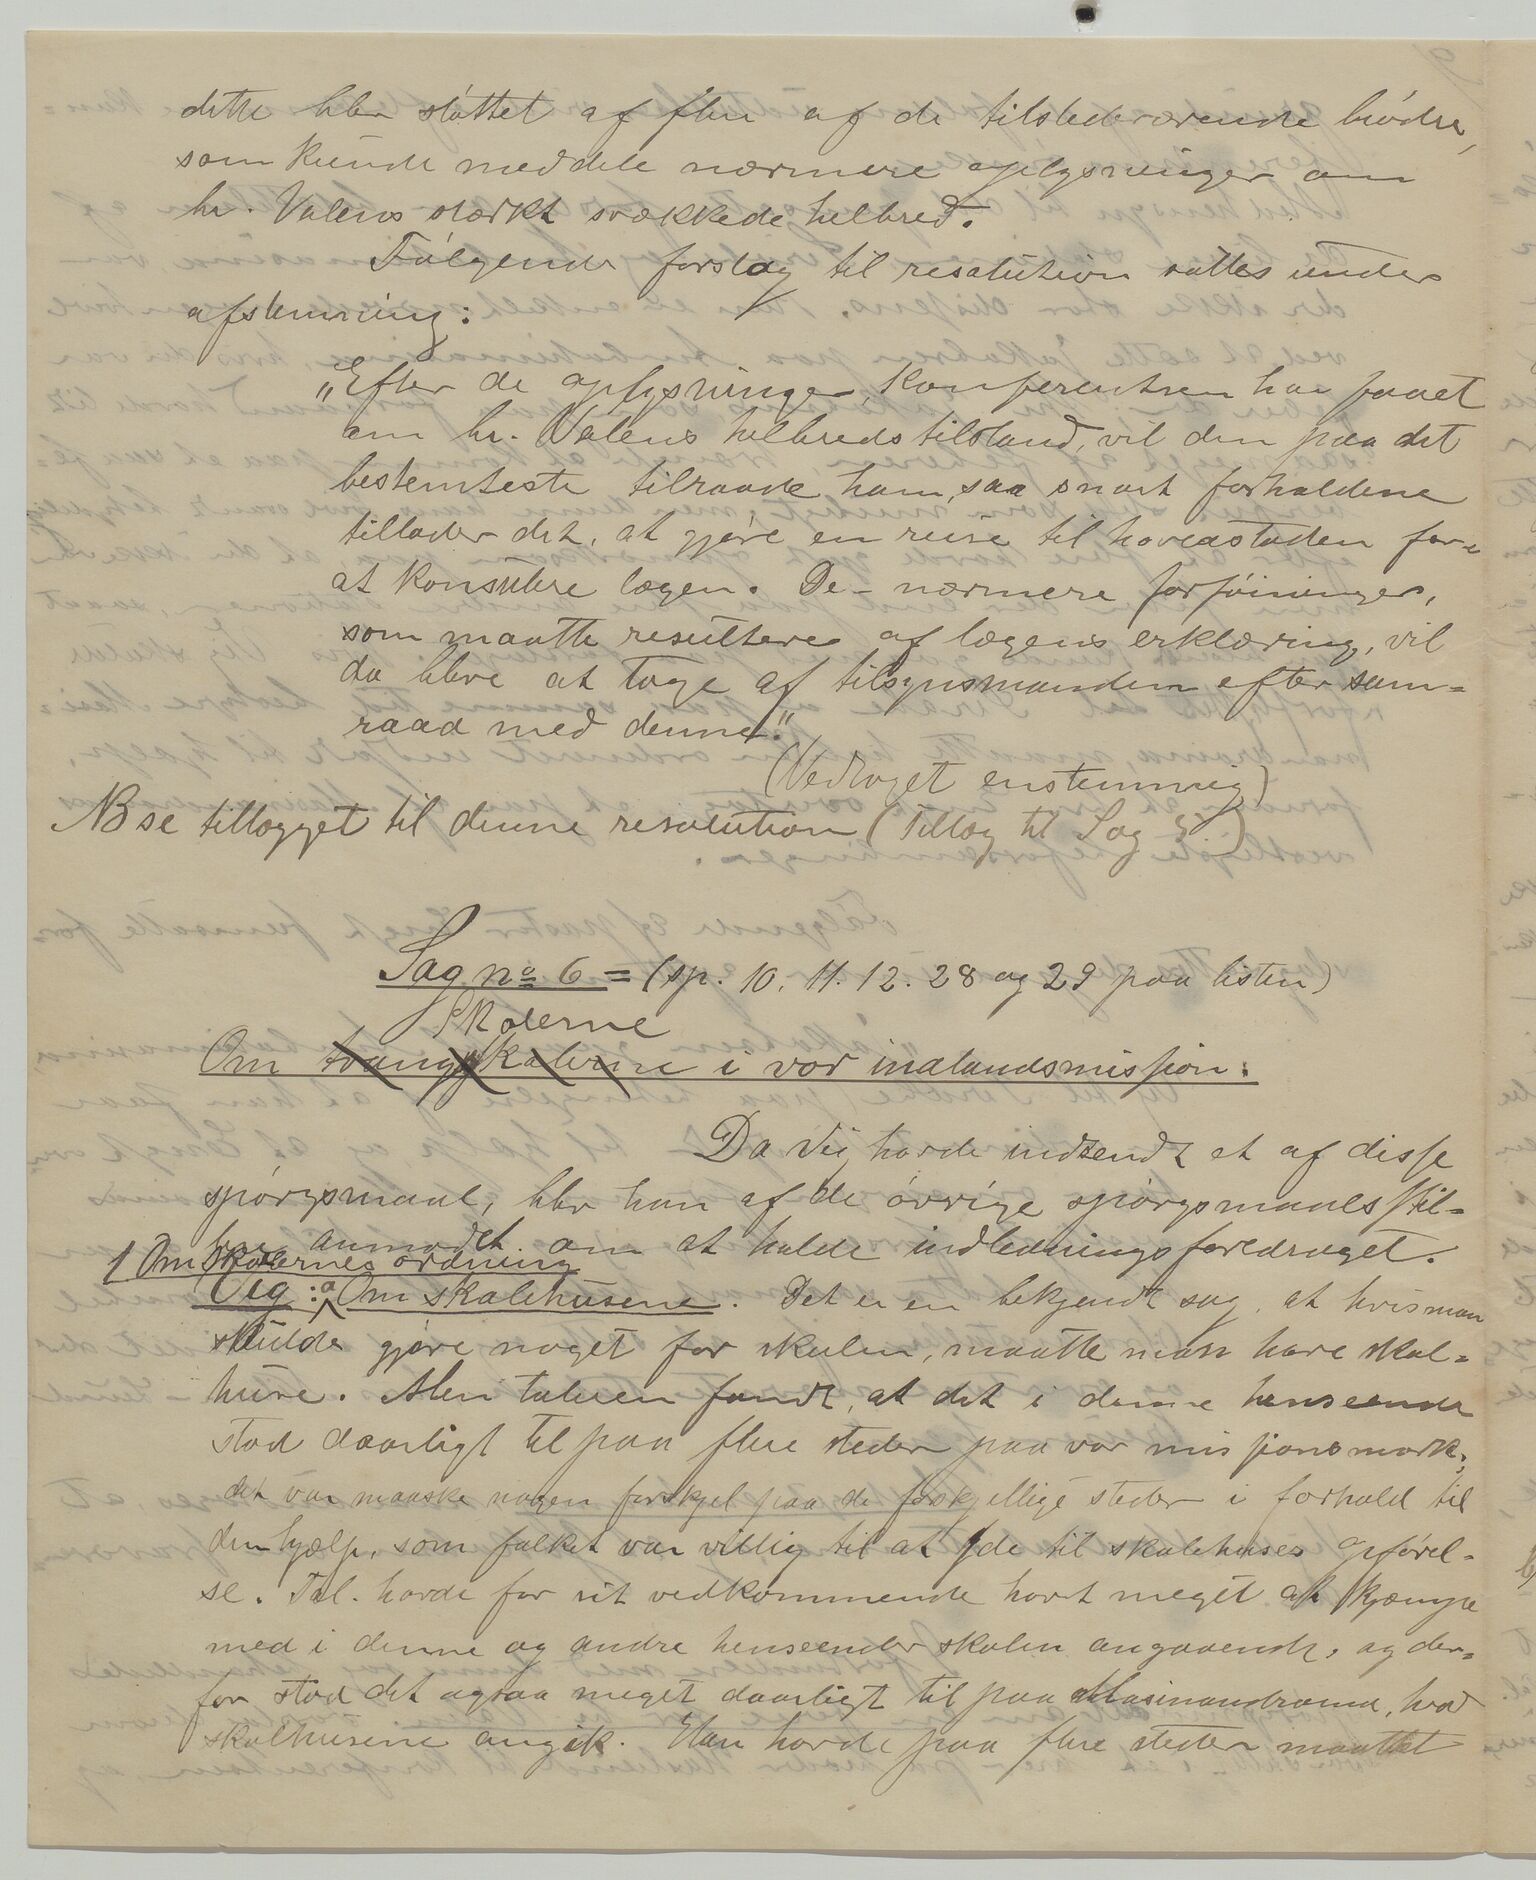 dette blev støttet af flere af de tilstedeværende brødre,
som kunde meddele nærmere oplysninger om
hr. Valens stærkt svækkede helbred.
Følgende forslag til resolution sattes under
afstemning:
„Efter de oplysninger, konferentsen har faaet
om hr. Valens helbredstilstand, vil den paa det
bestemteste tilraade ham, saa snart forholdene
tillader det, at gjøre en reise til hovedstaden for
at konsulere lægen. De nærmere forføininger,
som maatte resultere af lægens erklæring, vil
da blive at tage af tilsynsmanden efter sam-
raad med denne."
(Vedtaget enstemmig)
NB se tillægget til denne resolution (Tillæg til Sag 5.)
Sag no 6 = (sp. 10. 11. 12. 28 og 29 paa listen)
Skolerne
Om tvangsskolerne i vor indlandsmission.
Da Vig havde indsendt et af disse
spørgsmaal, blev han af de øvrige spørgsmaalsstil-
lere anmodet om at holde indledningsforedraget.
1 Om skolernes ordning
Vig: a Om skolehusene. Det er en bekjendt sag, at hvis man
skulde gjøre noget for skolen, maatte man have skol-
huse. Men taleren fandt, at det i denne henseende
stod daarligt til paa flere steder paa vor missionsmark;
det var maaske nogen forskjel paa de forskjellige steder i forhold til
den hjælp, som folket var villig til at yde til skolehuses opførel-
se. Tal. havde for sit vedkommende havt meget at kjæmpe
med i denne og andre henseender skolen angaaende, og der-
for stod det ogsaa meget daarligt til paa Masinandraina, hvad
skolhusene angik. Han havde paa flere steder maattet